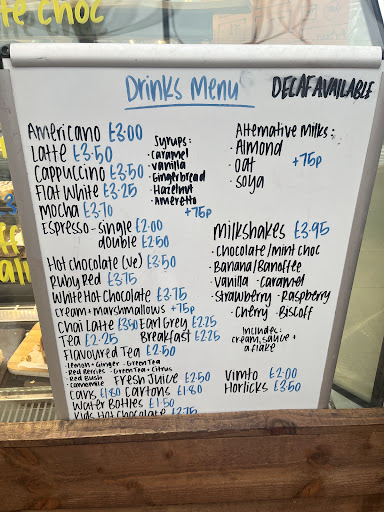 te choc
Drinks Menu
DECAF AVAILABLE
Americano £3.00
Latte £3.50
Cappuccino £3.50
Flat White £3.25
Mocha £3.70
Espresso - single £2.00
double £2.50
Syrups:
· Caramel
· Vanilla
· Gingerbread
· Hazelnut
· Ameretto
+75p
Alternative Milks:
· Almond
· Oat +75p
· Soya
Hot chocolate (ve) £3.50
Ruby Red £3.75
White Hot Chocolate £3.75
cream + marshmallows +75p
Chai Latte £3.50 Earl Grey £2.25
Tea £2.25 Breakfast £2.25
Flavoured Tea £2.50
· Lemon + Ginger · Green Tea
· Red Berries · Green Tea + Citrus
· Red Bush
· Camomile
Fresh Juice £2.50
Cans £1.80 Cartons £1.80
Water Bottles £1.50
Kids Hot Chocolate £2.75
Milkshakes £3.95
· Chocolate/mint choc
· Banana/Banoffee
· Vanilla · Caramel
· Strawberry · Raspberry
· Cherry · Biscoff
Includes:
cream, sauce +
a flake
Vimto £2.00
Horlicks £3.50